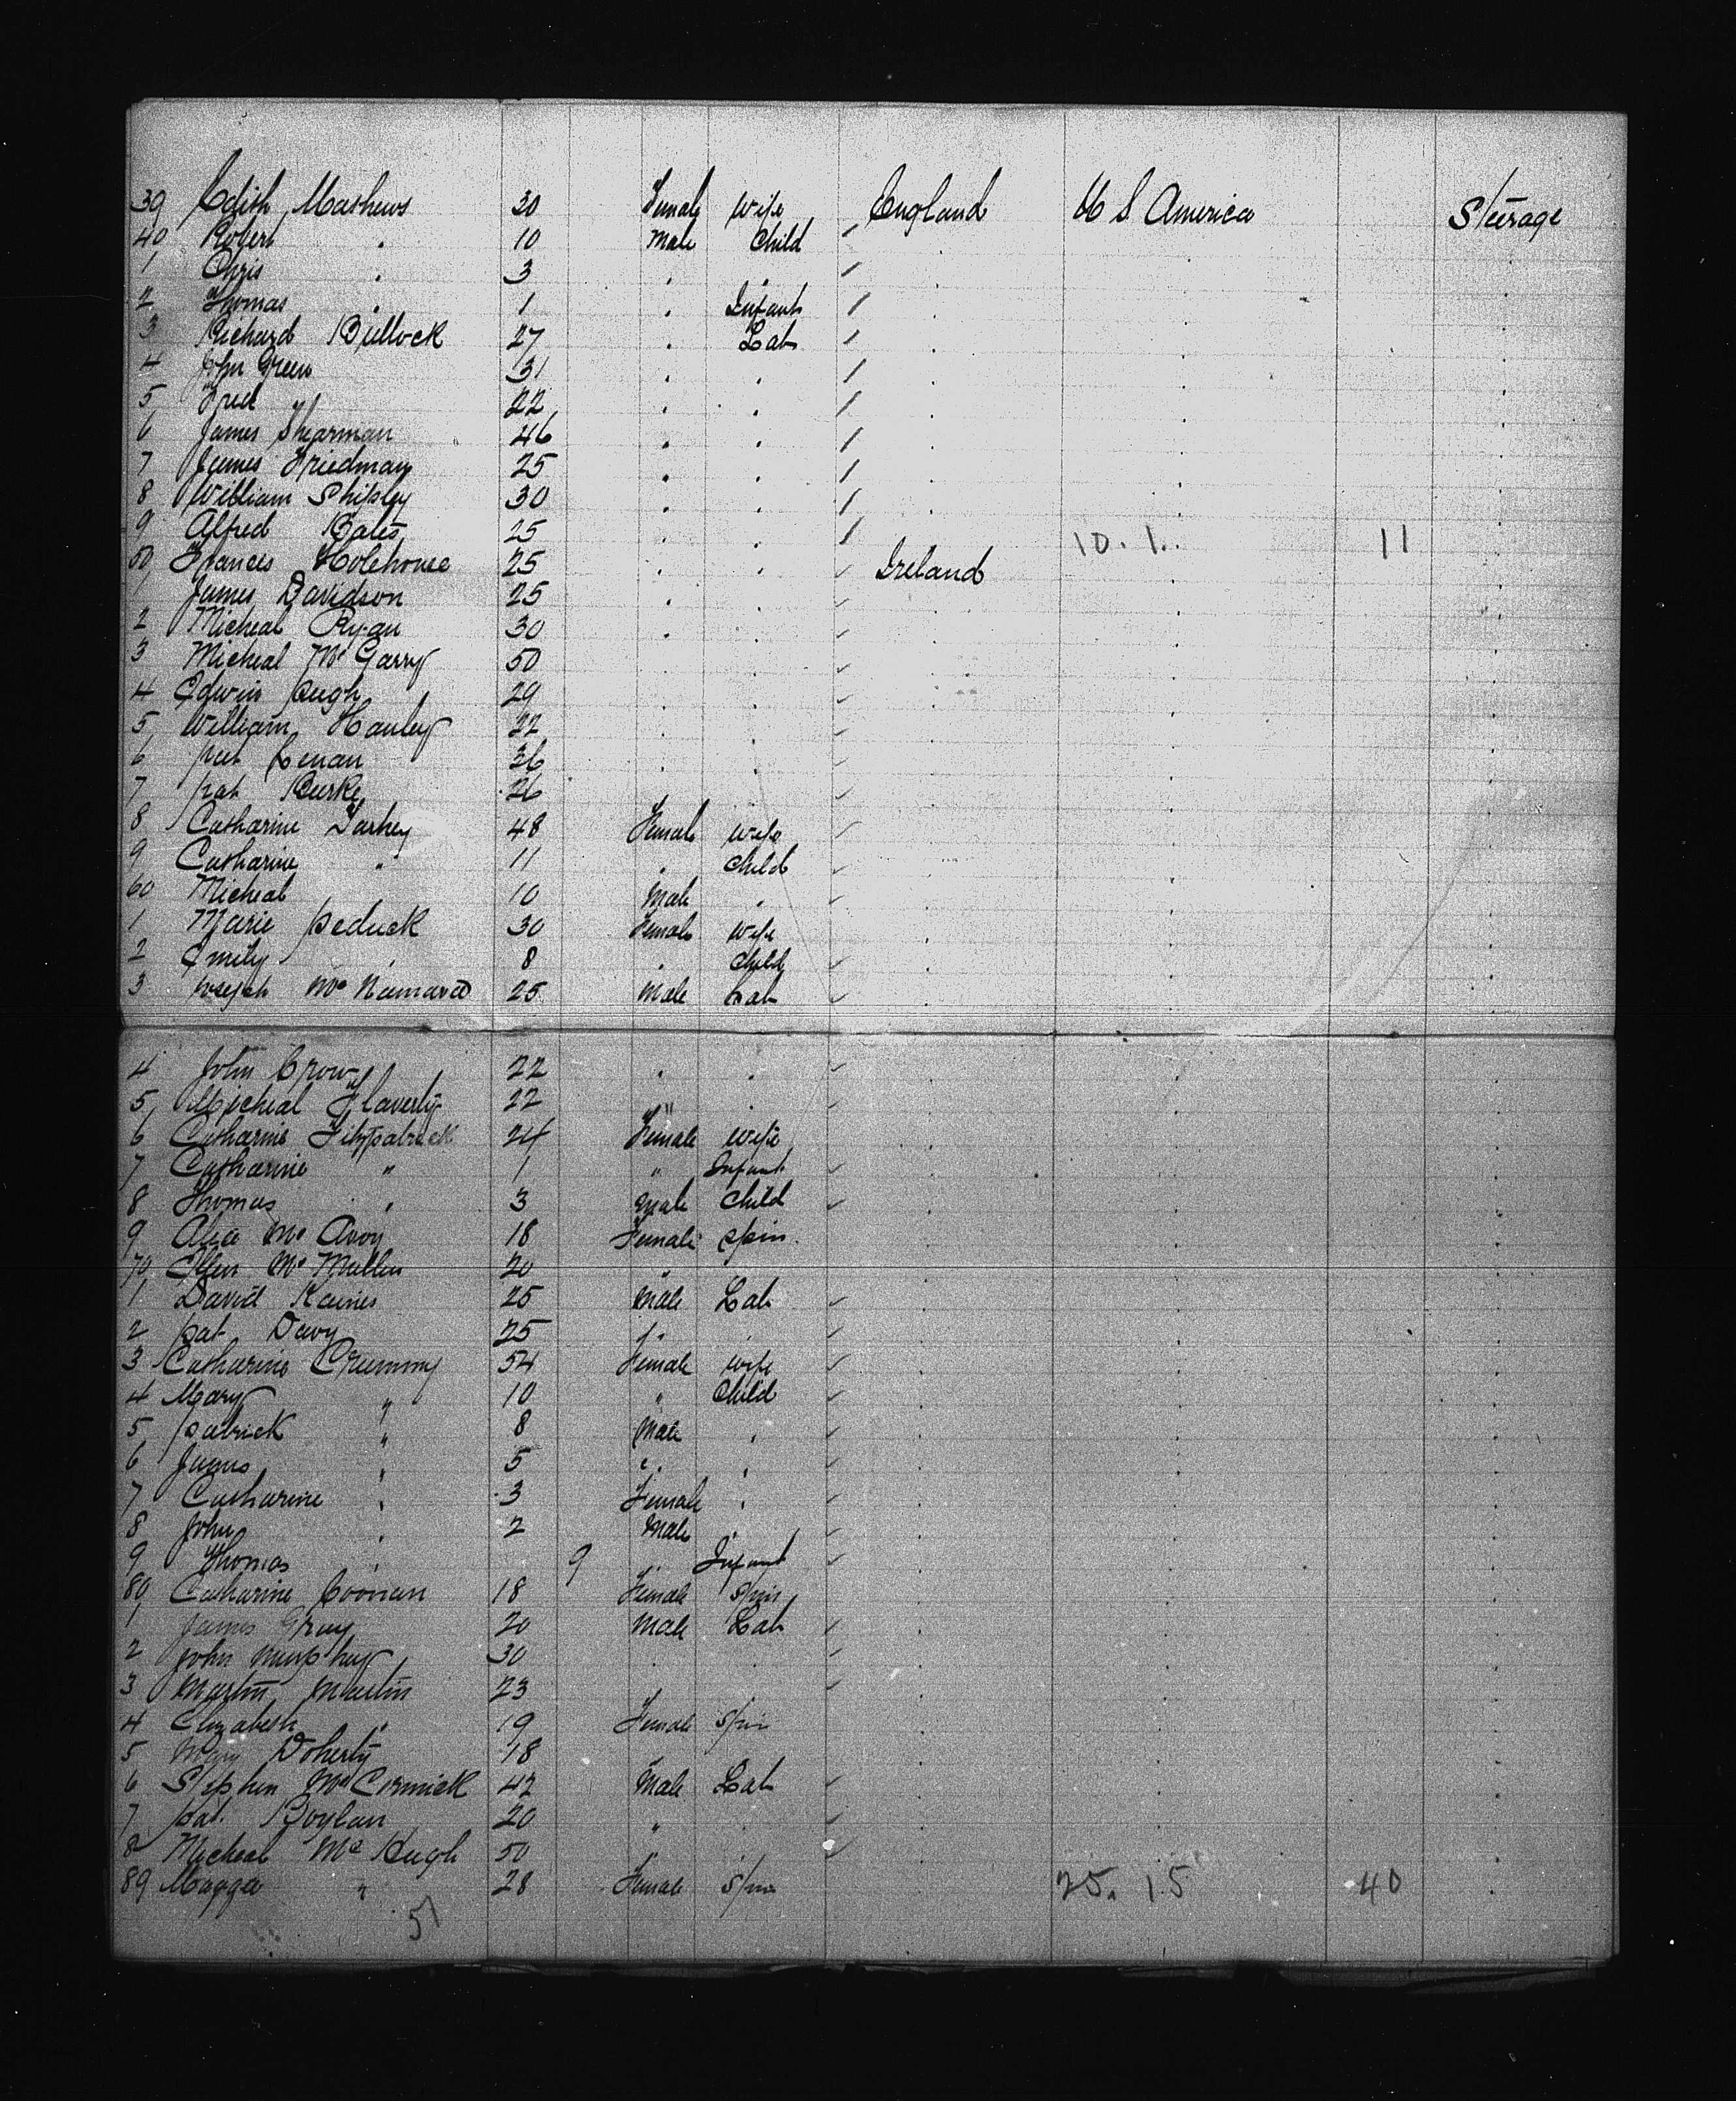 39 Edith Mathews 30 Female Wife England U S America Steerage
40 Robert " 10 Male Child
1 Chris " 3 " "
2 Thomas " 1 " Infant
3 Richard Bullock 27 " Lab
4 John Green 31 " "
5 Fred " 22 " "
6 James Shearman 46 " "
7 James Friedman 25 " "
8 William Shipley 30 " "
9 Alfred Bates 25 " " 10. 1. 11
50 Frances Holehouse 25 " " Ireland
1 James Davidson 25 " "
2 Micheal Ryan 30 " "
3 Micheal Mc Garry 50 " "
4 Edwin Pugh 29 " "
5 William Hanley 22 " "
6 Pat 26 " "
7 Pat Burke 26 " "
8 Catharine 48 Female Wife
9 Catharine " 11 " Child
60 Micheal 10 Male "
1 Marie Peduck 30 Female Wife
2 Emily " 8 " Child
3 Joseph Mc Namara 25 Male Lab
4 John Crow 22 " "
5 Micheal Flaverty 22 " "
6 Catharine Fitzpatrick 24 Female Wife
7 Catharine " 1 " Infant
8 Thomas " 3 Male Child
9 Alice Mc Avoy 18 Female Spin.
70 Ellen Mc Mullen 20 " "
1 David Kaines 25 Male Lab
2 Pat Davy 25 " "
3 Catharine Crummy 54 Female Wife
4 Mary " 10 " Child
5 Patrick " 8 Male "
6 James " 5 " "
7 Catharine " 3 Female "
8 John " 2 Male "
9 Thomas " 9 " Infant
80 Catharine Coonan 18 Female Spin
1 James Gray 20 Male Lab
2 John Murphy 30 " "
3 Martin Martin 23 " "
4 Elizabeth " 19 Female Spin
5 Mary Doherty 18 " "
6 Stephen Mc Cormick 42 Male Lab
7 Pat. Boylan 20 " "
8 Micheal Mc Hugh 50 " "
89 Maggie " 28 Female Spin 25. 15 40
51